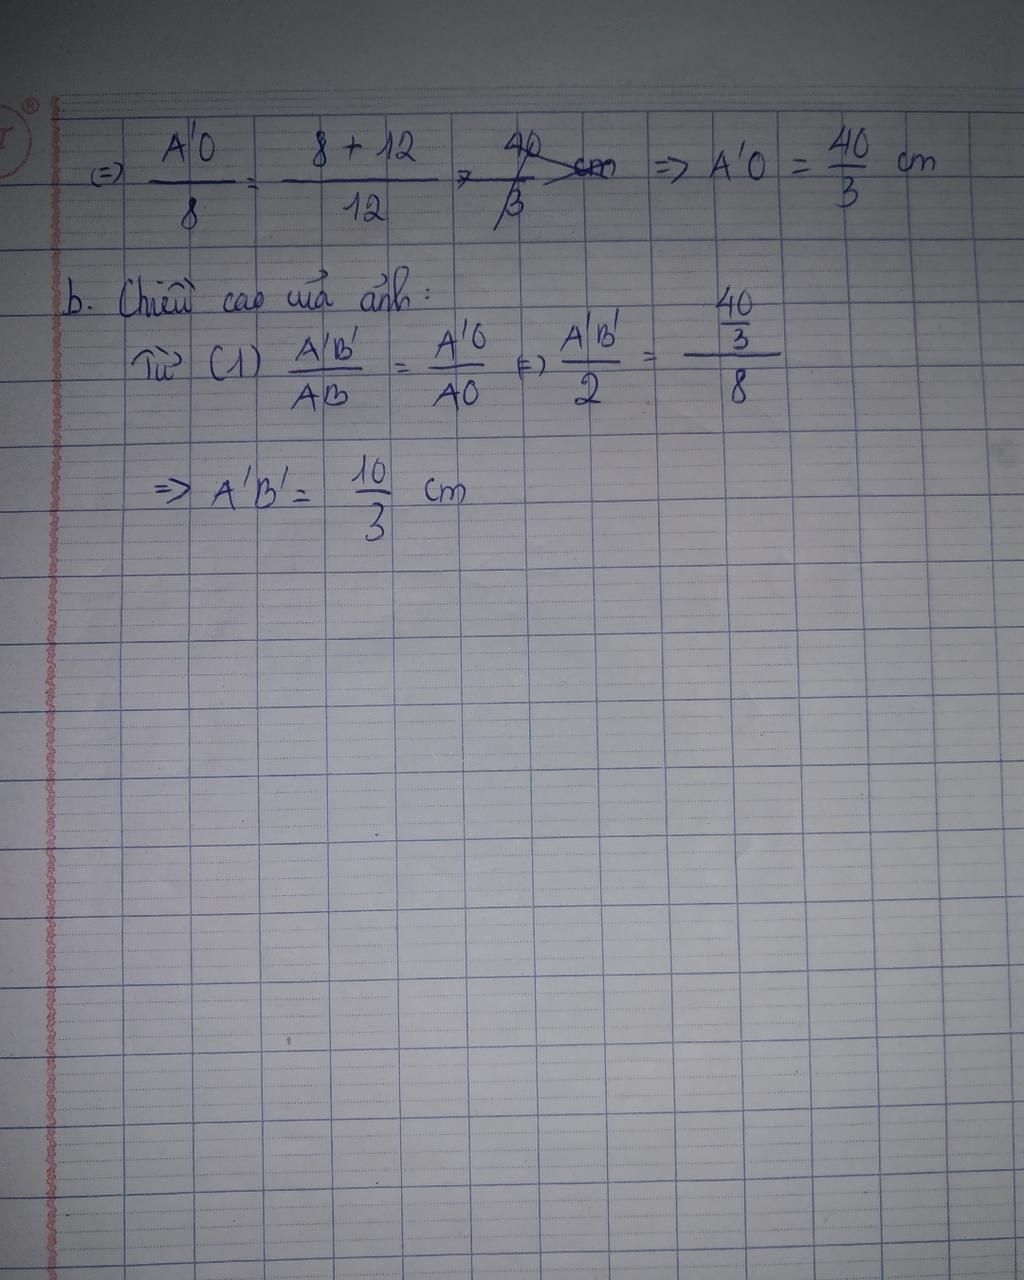 (=) A'O/8 = 8 + 12/12 => 40/3 cm => A'O = 40/3 cm
b. Chiều cao của ảnh:
Từ (1) A'B'/AB = A'O/AO (=) A'B'/2 = 40/3/8
=> A'B' = 10/3 cm